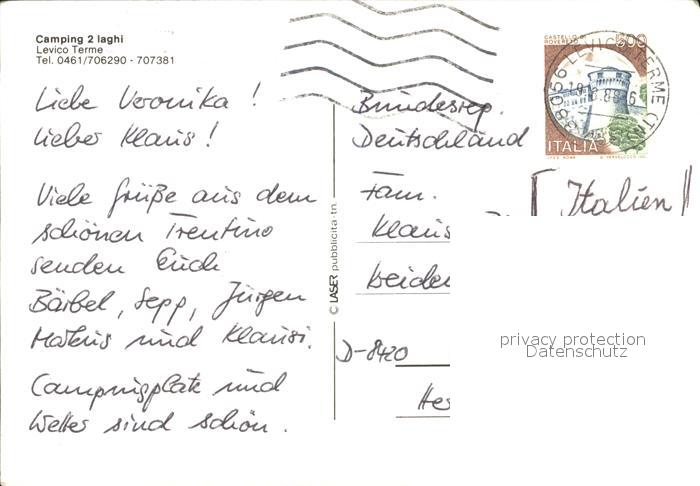 Camping 2 laghi
Levico Terme
Tel. 0461/706290 - 707381
Liebe Veronika !
Lieber Klaus !
Viele Grüße aus dem
schönen Trentino
senden Euch
Bärbel, Sepp, Jürgen
und Klausi.
Campingplatz und
Wetter sind schön.
© LASER pubblicità - tn.
Bundesrep.
Deutschland
Fam.
Klaus
D-8420
[ Italien
CASTELLO DI
ROVERETO
500
ITALIA
38056 LEVICO TERME (TN)
privacy protection
Datenschutz